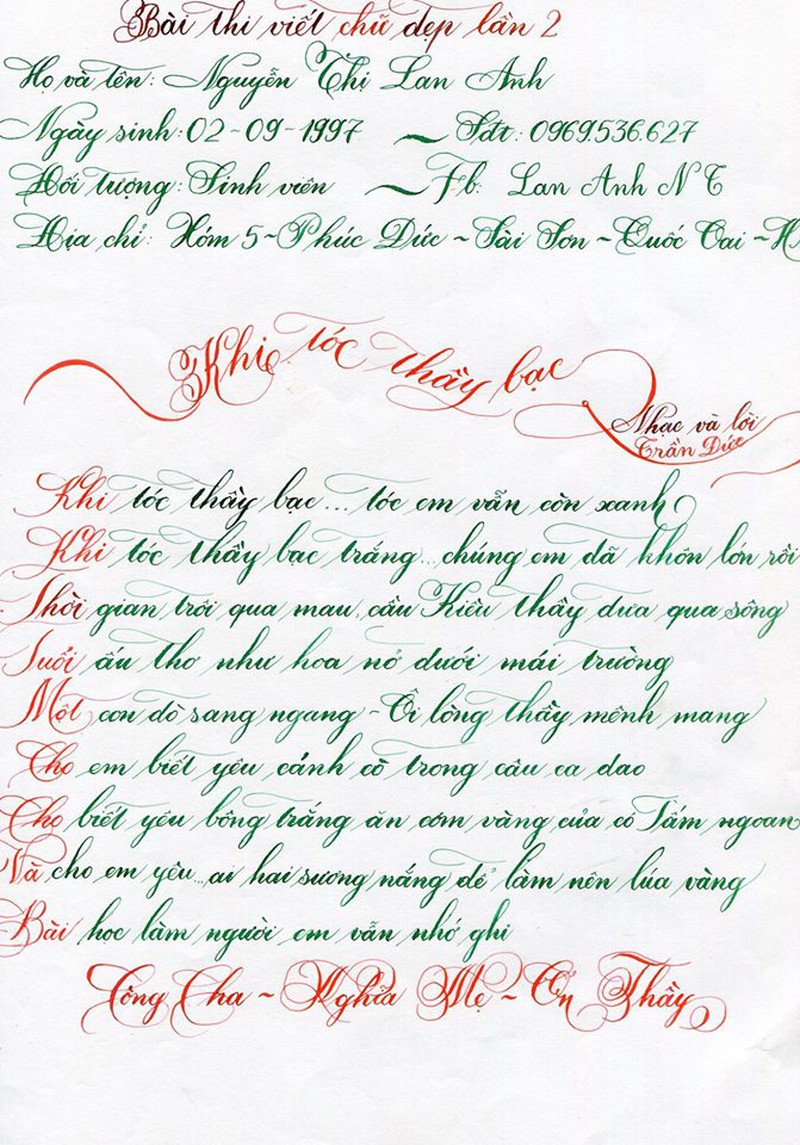 Bài thi viết chữ đẹp lần 2
Họ và tên: Nguyễn Thị Lan Anh
Ngày sinh: 02-09-1997 ~ Sđt: 0969.536.627
Đối tượng: Sinh viên ~ Fb: Lan Anh NT
Địa chỉ: Xóm 5 ~ Phúc Đức ~ Sài Sơn ~ Quốc Oai ~ H
Khi tóc thầy bạc
Nhạc và lời
Trần Đức
Khi tóc thầy bạc... tóc em vẫn còn xanh
Khi tóc thầy bạc trắng... chúng em đã khôn lớn rồi
Thời gian trôi qua mau, cầu Kiều thầy đưa qua sông
Tuổi ấu thơ như hoa nở dưới mái trường
Một con đò sang ngang - Ôi lòng thầy mênh mang
Cho em biết yêu cánh cò trong câu ca dao
Cho biết yêu bông trắng ăn cơm vàng của cô Tấm ngoan
Và cho em yêu... ai hai sương nắng để làm nên lúa vàng
Bài học làm người em vẫn nhớ ghi
Công Cha ~ Nghĩa Mẹ ~ Ơn Thầy